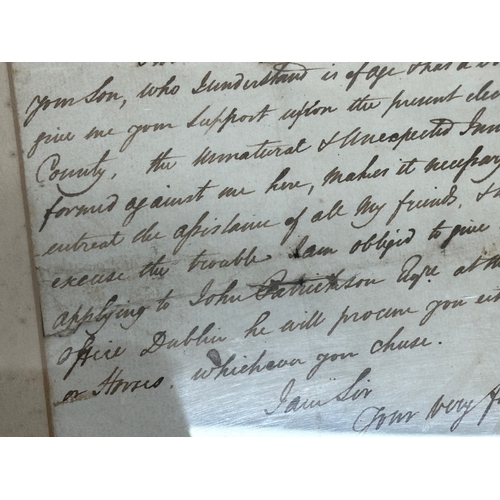 your Son, who I understand is of age & has a
give me your support upon the present
County, the unnatural & unexpected
formed against me here, makes it necessary
entreat the assistance of all my friends, &
excuse the trouble I am obliged to give
applying to John Patrickson Esqre. at
office Dublin he will procure you
or Horses, whichever you chuse.
I am Sir
Your very